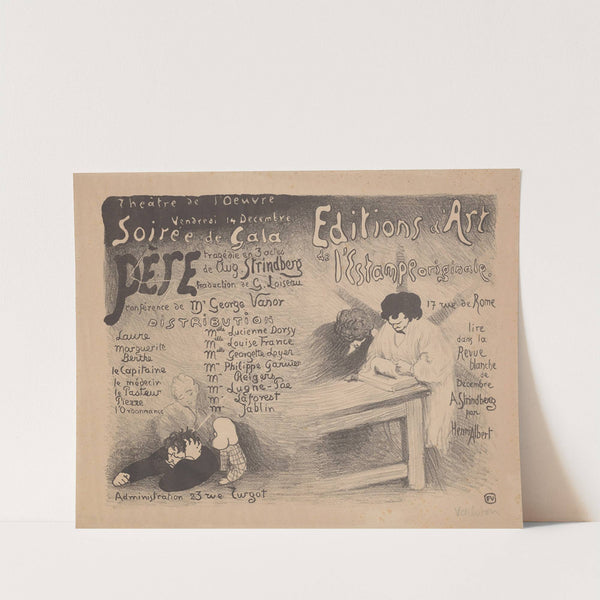 Théâtre de l'Oeuvre
Vendredi 14 Decembre
Soirée de Gala
PÈRE
tragédie en 3 actes
de Aug Strindberg
traduction de G. Loiseau
conférence de Mr George Vanor
DISTRIBUTION
Laure Melle Lucienne Dorsy
Marguerite Melle Louise France
Berthe Melle Georgette Loyer
le Capitaine Mr Philippe Garnier
le médecin Mr Reigers
le Pasteur Mr Lugne-Poe
Pierre Mr Laforest
l'Ordonnance Mr Jablin
Administration 23 rue Turgot
Editions d'Art
de l'Estampe originale.
17 rue de Rome
lire
dans la
Revue
blanche
de
Décembre
A. Strindberg
par
Henri Albert
FV